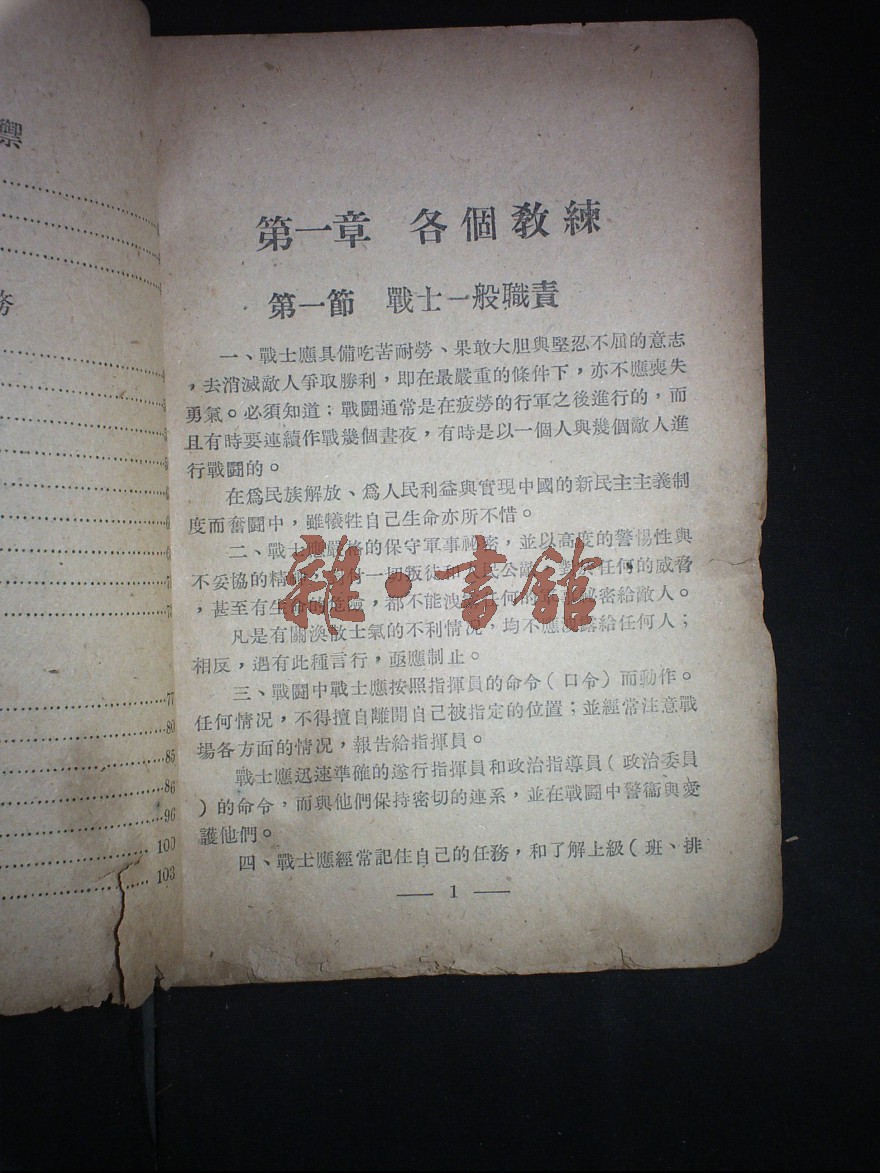 禦
務
77
80
85
86
96
100
103
第一章 各個教練
第一節 戰士一般職責
一、戰士應具備吃苦耐勞、果敢大胆與堅忍不屈的意志
，去消滅敵人爭取勝利，即在最嚴重的條件下，亦不應喪失
勇氣。必須知道；戰鬪通常是在疲勞的行軍之後進行的，而
且有時要連續作戰幾個晝夜，有時是以一個人與幾個敵人進
行戰鬪的。
在爲民族解放、爲人民利益與實現中國的新民主主義制
度而奮鬪中，雖犠牲自己生命亦所不惜。
二、戰士應嚴格的保守軍事祕密，並以高度的警惕性與
不妥協的精 一切叛徒和人民公敵 任何的威脅
，甚至有生命的危險，都不能洩 任何的 密給敵人。
凡是有關渙散士氣的不利情況，均不應洩露給任何人；
相反，遇有此種言行，亟應制止。
三、戰鬪中戰士應按照指揮員的命令（口令）而動作。
任何情況，不得擅自離開自己被指定的位置；並經常注意戰
場各方面的情況，報告給指揮員。
戰士應迅速準確的遂行指揮員和政治指導員（政治委員
）的命令，而與他們保持密切的連系，並在戰鬪中警衞與愛
護他們。
四、戰士應經常記住自己的任務，和了解上級（班、排
— 1 —
雜·書館